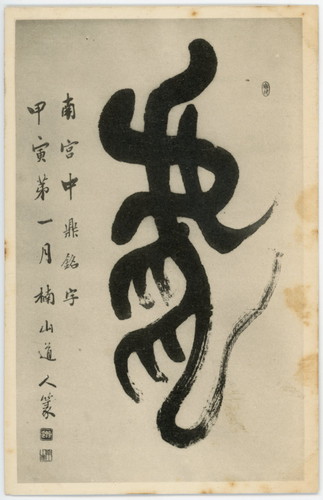 虎
南宮中鼎銘字
甲寅第一月楠山道人篆